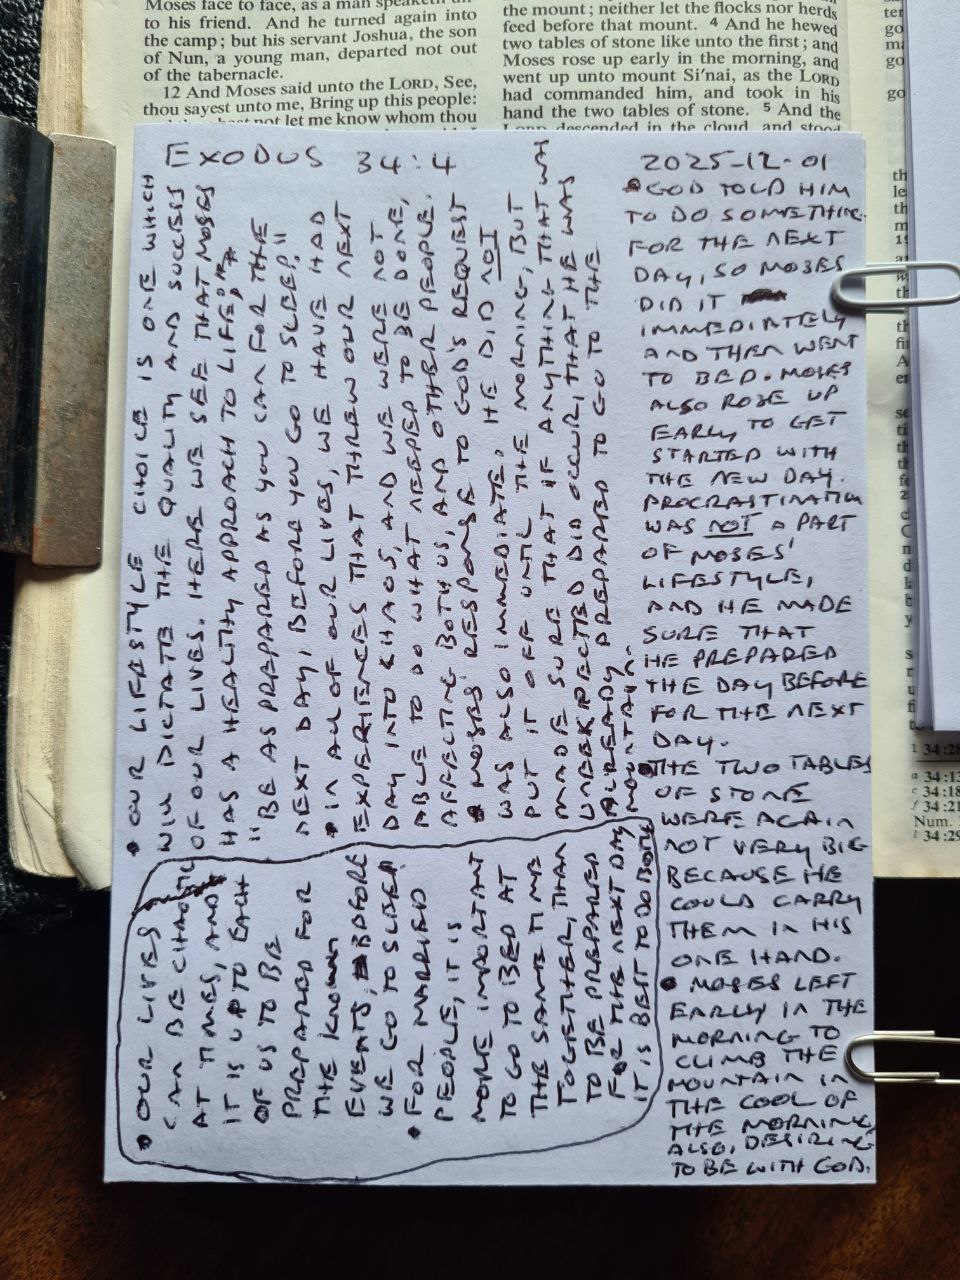 Moses face to face, as a man speaketh
to his friend. And he turned again into
the camp; but his servant Joshua, the son
of Nun, a young man, departed not out
of the tabernacle.
12 And Moses said unto the LORD, See,
thou sayest unto me, Bring up this people:
not let me know whom thou
the mount; neither let the flocks nor herds
feed before that mount. 4 And he hewed
two tables of stone like unto the first; and
Moses rose up early in the morning, and
went up unto mount Si'nai, as the LORD
had commanded him, and took in his
hand the two tables of stone. 5 And the
LORD descended in the cloud, and stood
EXODUS 34:4
2025-12-01
• GOD TOLD HIM
TO DO SOMETHING
FOR THE NEXT
DAY, SO MOSES
DID IT
IMMEDIATELY
AND THEN WENT
TO BED. MOSES
ALSO ROSE UP
EARLY TO GET
STARTED WITH
THE NEW DAY.
PROCRASTINATION
WAS NOT A PART
OF MOSES'
LIFESTYLE,
AND HE MADE
SURE THAT
HE PREPARED
THE DAY BEFORE
FOR THE NEXT
DAY.
• THE TWO TABLES
OF STONE
WERE AGAIN
NOT VERY BIG
BECAUSE HE
COULD CARRY
THEM IN HIS
ONE HAND.
• MOSES LEFT
EARLY IN THE
MORNING TO
CLIMB THE
MOUNTAIN IN
THE COOL OF
THE MORNING,
ALSO, DESIRING
TO BE WITH GOD.
• OUR LIFESTYLE CHOICE IS ONE WHICH
WILL DICTATE THE QUALITY AND SUCCESS
OF OUR LIVES. HERE WE SEE THAT MOSES
HAS A HEALTHY APPROACH TO LIFE,
"BE AS PREPARED AS YOU CAN FOR THE
NEXT DAY, BEFORE YOU GO TO SLEEP."
• IN ALL OF OUR LIVES, WE HAVE HAD
EXPERIENCES THAT THREW OUR NEXT
DAY INTO KHAOS, AND WE WERE NOT
ABLE TO DO WHAT NEEDED TO BE DONE,
AFFECTING BOTH US, AND OTHER PEOPLE.
• MOSES' RESPONSE TO GOD'S REQUEST
WAS ALSO IMMEDIATE. HE DID NOT
PUT IT OFF UNTIL THE MORNING, BUT
MADE SURE THAT IF ANYTHING THAT WAS
UNEXPECTED DID OCCUR, THAT HE WAS
ALREADY PREPARED TO GO TO THE
MOUNTAIN.
• OUR LIVES
CAN BE CHAOTIC
AT TIMES, AND
IT IS UP TO EACH
OF US TO BE
PREPARED FOR
THE KNOWN
EVENTS, BEFORE
WE GO TO SLEEP.
• FOR MARRIED
PEOPLE, IT IS
MORE IMPORTANT
TO GO TO BED AT
THE SAME TIME
TOGETHER, THAN
TO BE PREPARED
FOR THE NEXT DAY
IT IS BEST TO DO BOTH
1 34:28
a 34:13
c 34:18
f 34:21
Num.
i 34:29